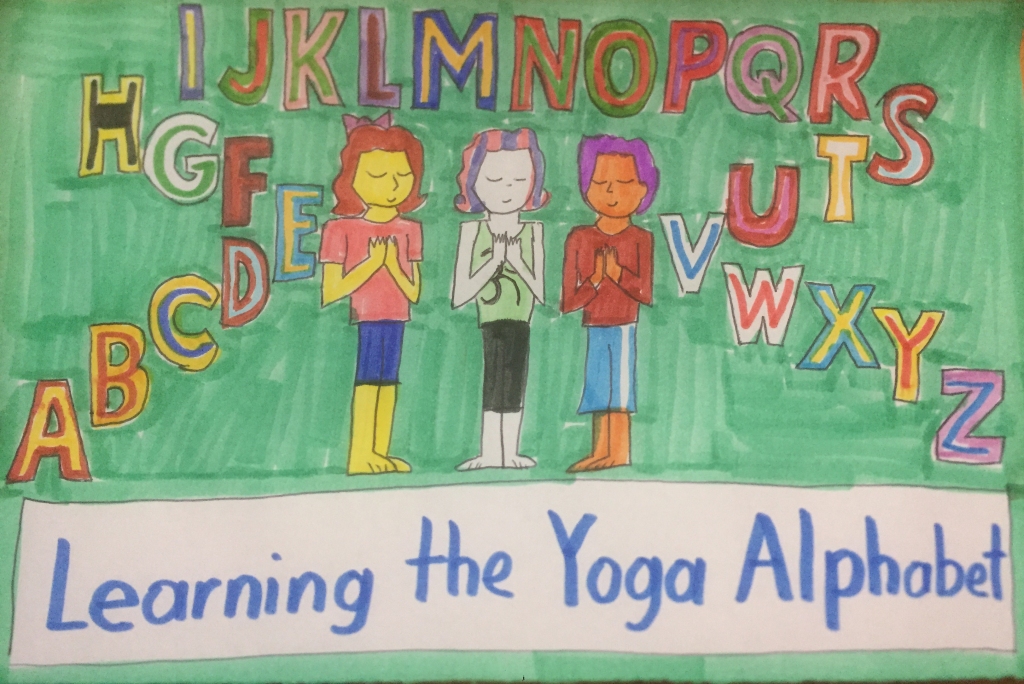 A B C D E F G H I J K L M N O P Q R S T U V W X Y Z
Learning the Yoga Alphabet